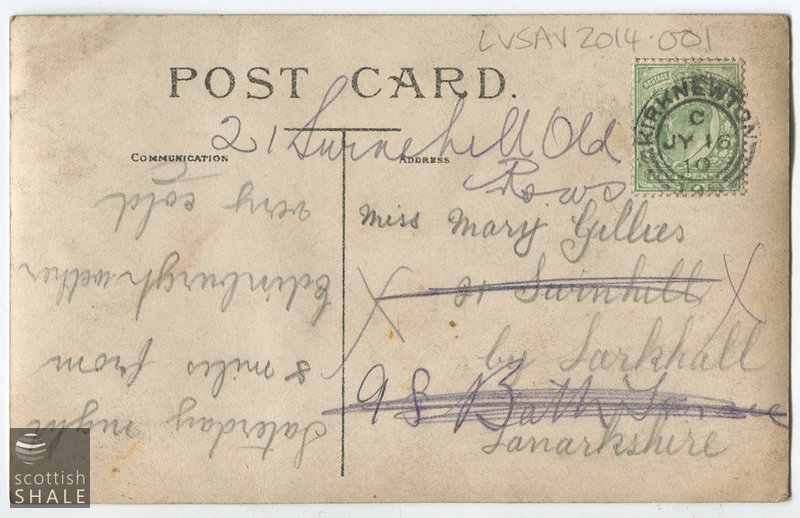 LVSAV2014.001
POST CARD.
21 Swinehill Old
Rows
COMMUNICATION
ADDRESS
KIRKNEWTON
C
JY 16
10
Miss Mary Gillies
21 Swinhill
by Larkhall
98 Bath
Lanarkshire
Saturday night
8 miles from
Edinburgh wether
very cold
scottish
SHALE